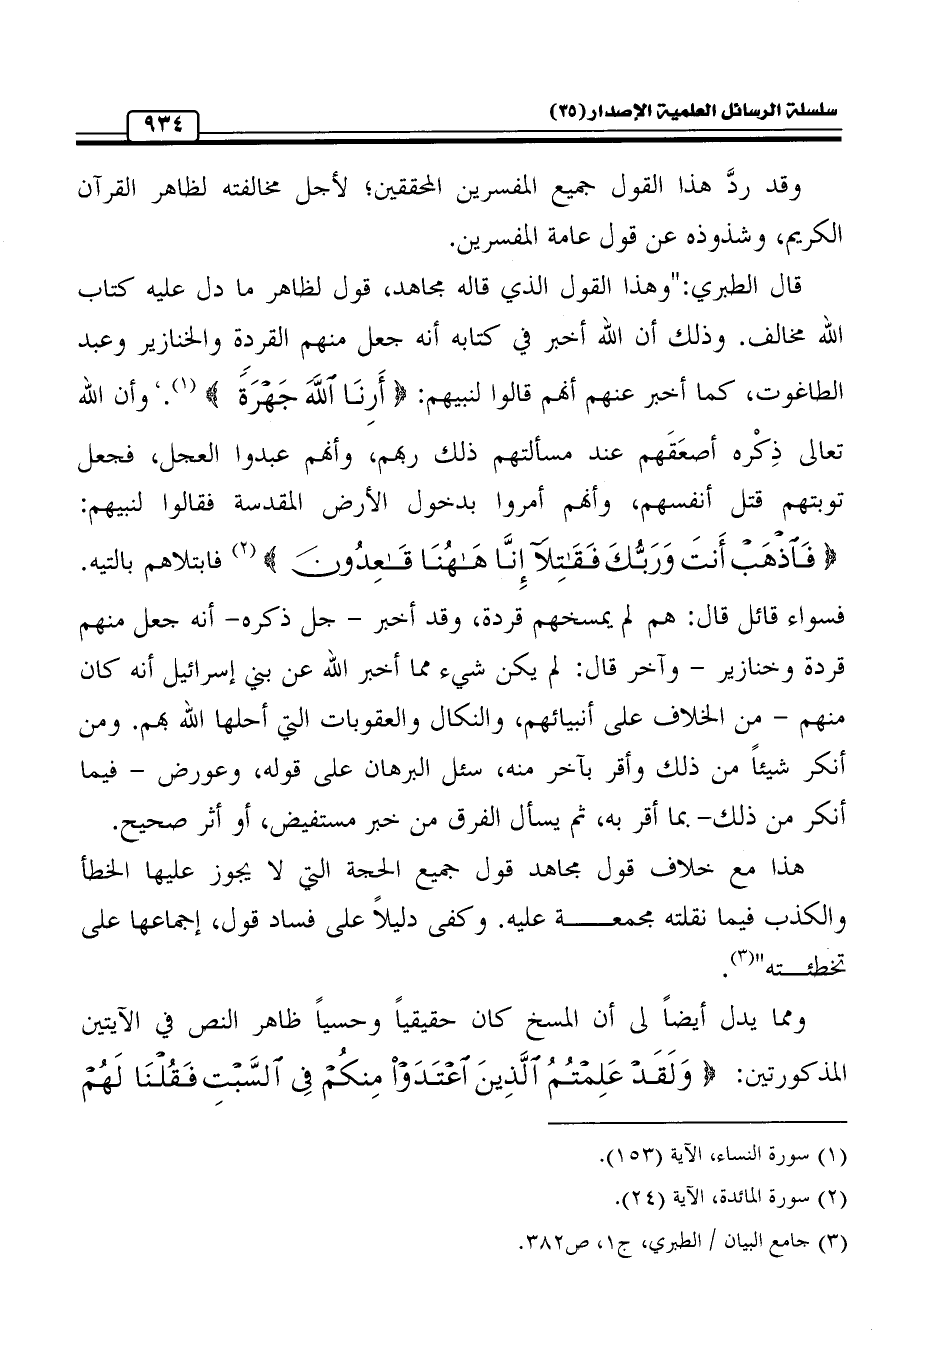 سلسلة الرسائل العلمية الإصدار (٣٥)
٩٣٤
وقد ردَّ هذا القول جميع المفسرين المحققين؛ لأجل مخالفته لظاهر القرآن
الكريم، وشذوذه عن قول عامة المفسرين.
قال الطبري:"وهذا القول الذي قاله مجاهد، قول لظاهر ما دل عليه كتاب
الله مخالف. وذلك أن الله أخبر في كتابه أنه جعل منهم القردة والخنازير وعبد
الطاغوت، كما أخبر عنهم أنهم قالوا لنبيهم: ﴿ أَرِنَا ٱللَّهَ جَهْرَةً ﴾(١).، وأن الله
تعالى ذِكْره أصعَقَهم عند مسألتهم ذلك ربهم، وأنهم عبدوا العجل، فجعل
توبتهم قتل أنفسهم، وأنهم أمروا بدخول الأرض المقدسة فقالوا لنبيهم:
﴿ فَٱذْهَبْ أَنتَ وَرَبُّكَ فَقَـٰتِلَآ إِنَّا هَـٰهُنَا قَـٰعِدُونَ ﴾(٢) فابتلاهم بالتيه.
فسواء قائل قال: هم لم يمسخهم قردة، وقد أخبر - جل ذكره- أنه جعل منهم
قردة وخنازير - وآخر قال: لم يكن شيء مما أخبر الله عن بني إسرائيل أنه كان
منهم - من الخلاف على أنبيائهم، والنكال والعقوبات التي أحلها الله بهم. ومن
أنكر شيئاً من ذلك وأقر بآخر منه، سئل البرهان على قوله، وعورض - فيما
أنكر من ذلك- بما أقر به، ثم يسأل الفرق من خبر مستفيض، أو أثر صحيح.
هذا مع خلاف قول مجاهد قول جميع الحجة التي لا يجوز عليها الخطأ
والكذب فيما نقلته مجمعـــــة عليه. وكفى دليلاً على فساد قول، إجماعها على
تخطئـــته"(٣).
ومما يدل أيضاً لى أن المسخ كان حقيقياً وحسياً ظاهر النص في الآيتين
المذكورتين: ﴿ وَلَقَدْ عَلِمْتُمُ ٱلَّذِينَ ٱعْتَدَوْا۟ مِنكُمْ فِى ٱلسَّبْتِ فَقُلْنَا لَهُمْ
(١) سورة النساء، الآية (١٥٣).
(٢) سورة المائدة، الآية (٢٤).
(٣) جامع البيان / الطبري، ج١، ص٣٨٢.